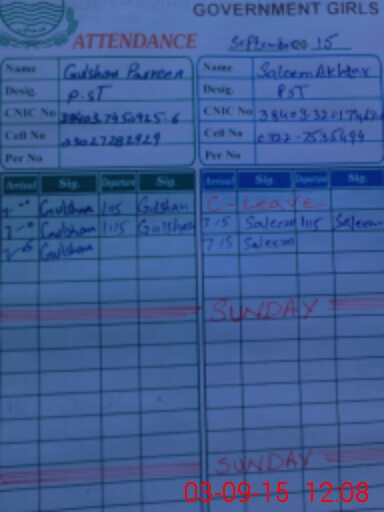 GOVERNMENT GIRLS
ATTENDANCE
September 2015
Name Gulshan Parveen
Desig. P.ST
CNIC No
Cell No 03027282929
Per No
Name Saleem Akhter
Desig. PST
CNIC No
Cell No 0322-7535499
Per No
Arrival Sig. Departure Sig.
Gulshan Gulshan
Gulshan 1:15 Gulshan
Gulshan
Arrival Sig. Departure Sig.
C-Leave
7:15 Saleem 1:15 Saleem
7:15 Saleem
SUNDAY
SUNDAY
03-09-15 12:08